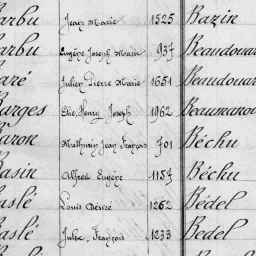 Barbu Jean Marie 1525 Bazin
Barbu Eugène Joseph Marie 937 Beaudouard
Baré Julien Pierre Marie 1651 Beaudouard
Barges Elie, Henry Joseph 1962 Beaumanoir
Baron Mathurin Jean François 701 Béchu
Basin Alfred Eugène 1157 Béchu
Baslé Louis Désiré 1262 Bédel
Baslé Jules, François 1233 Bedel